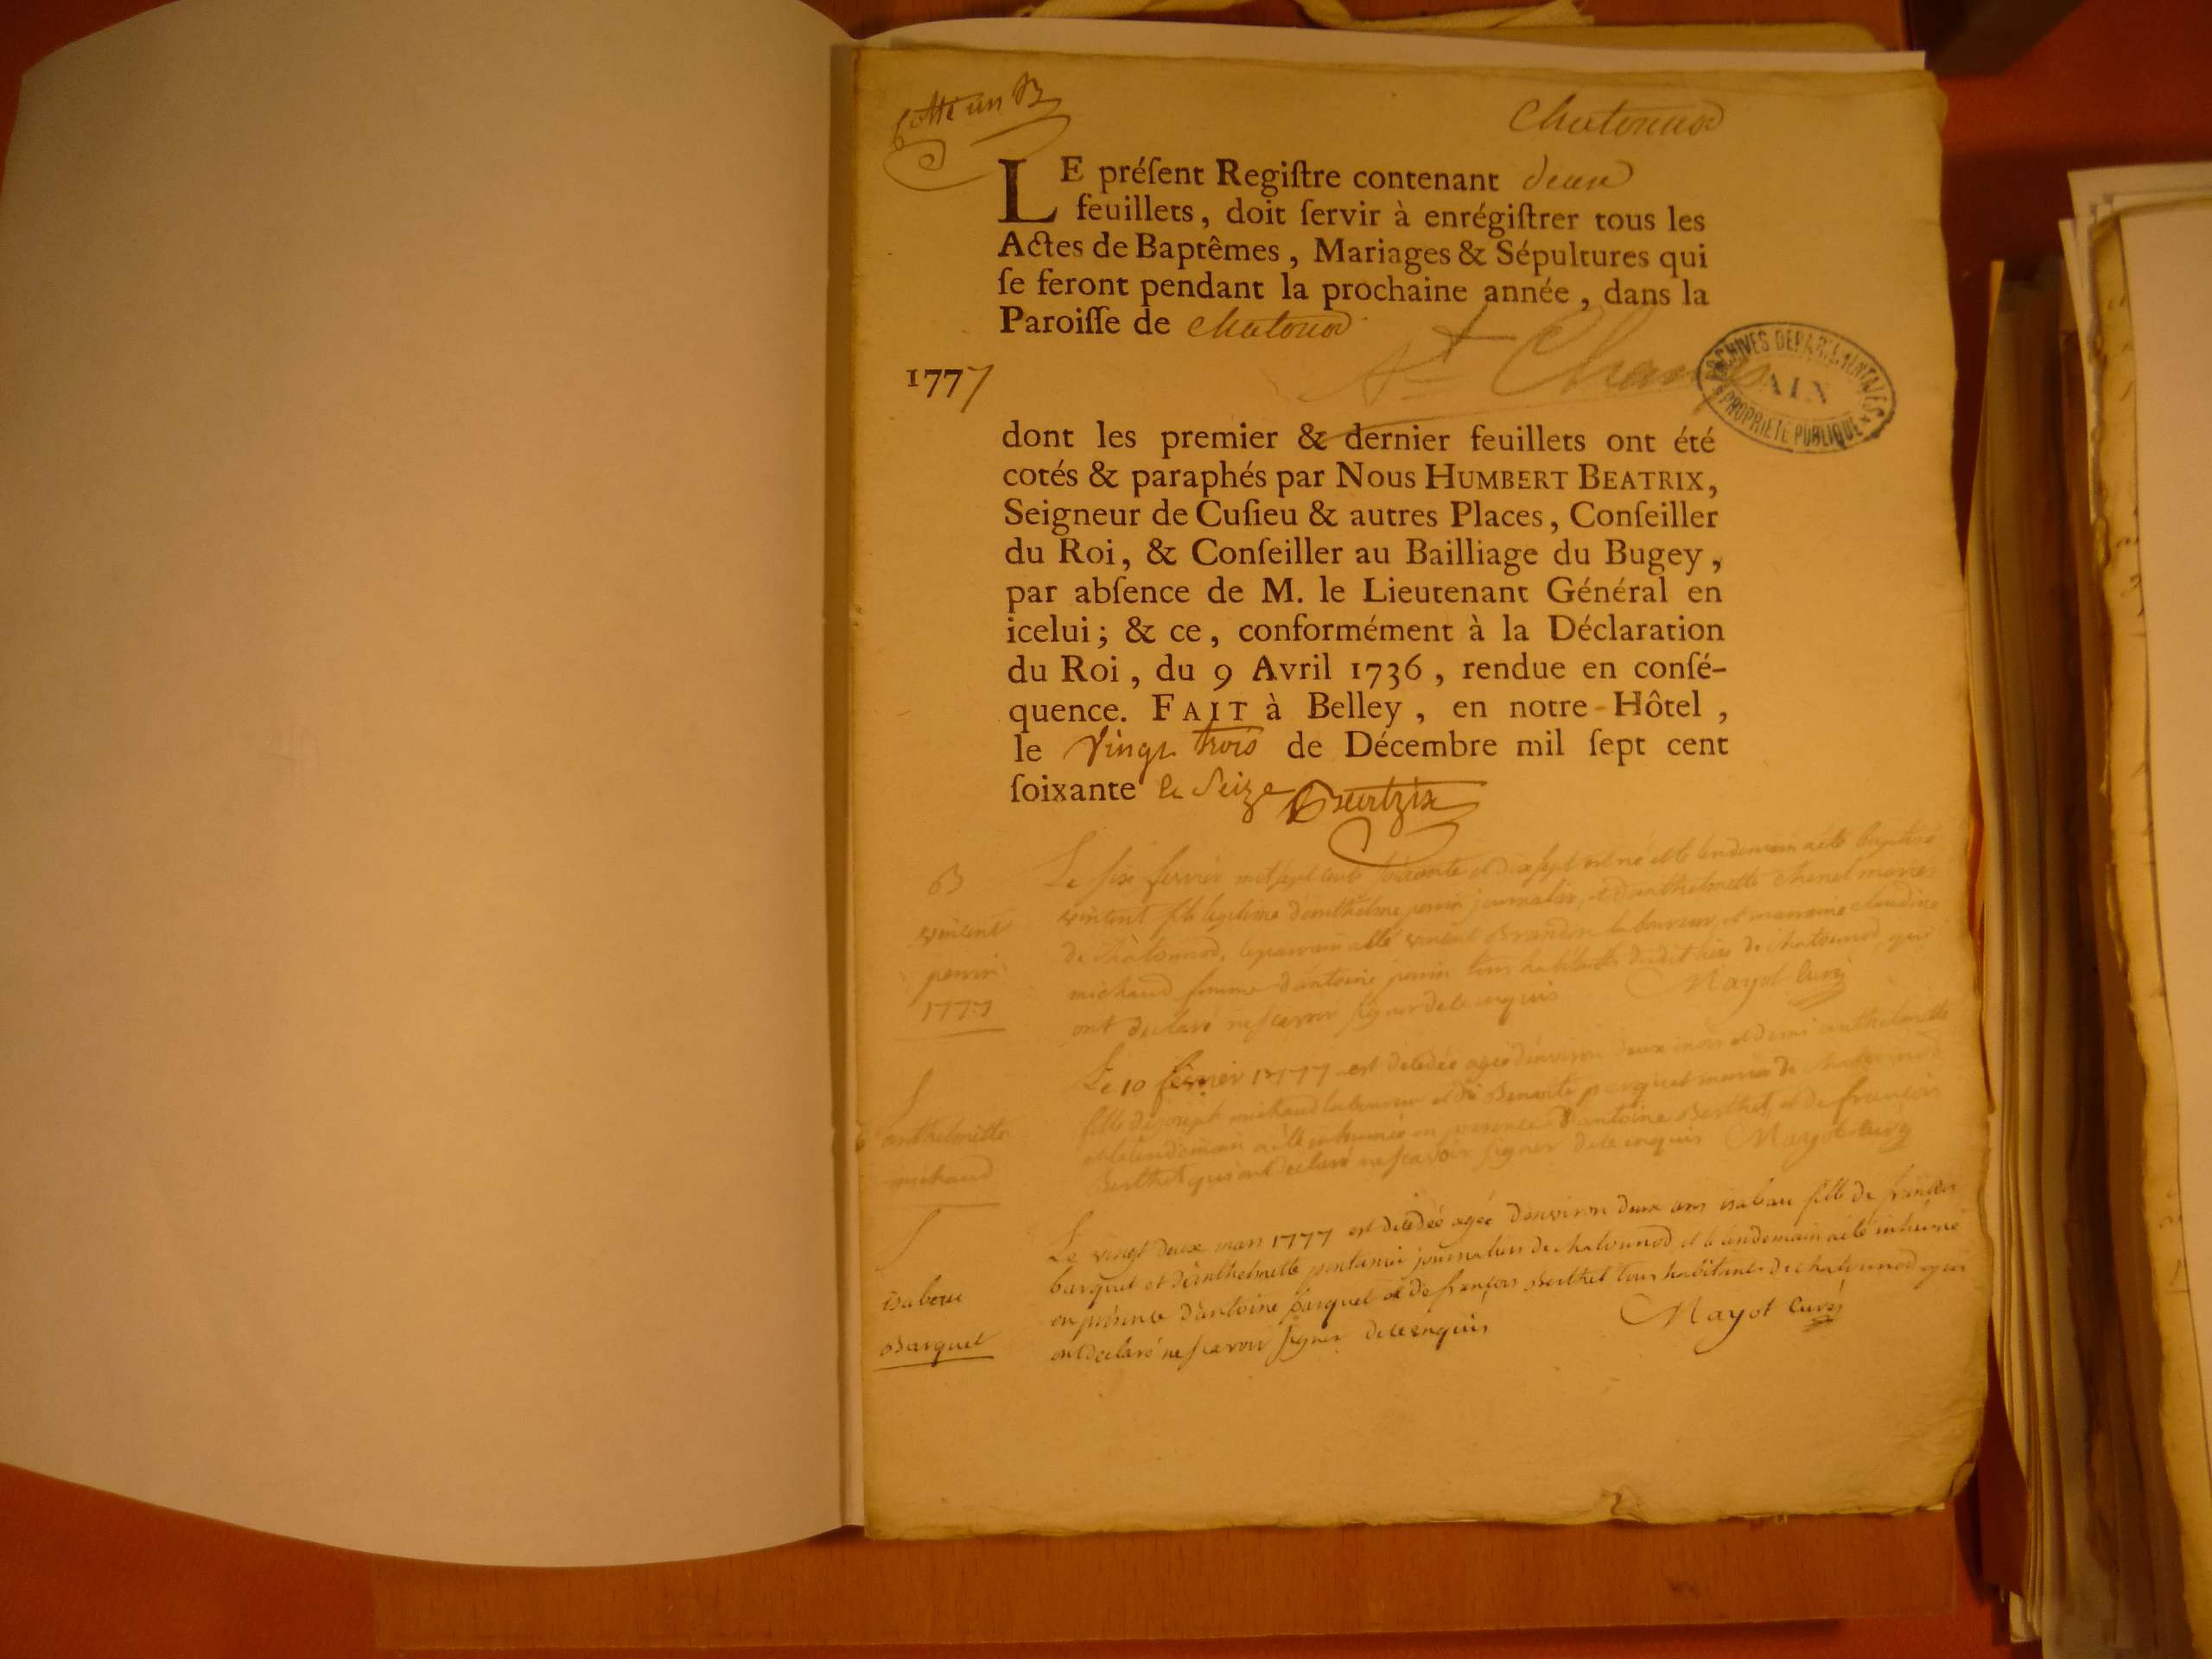 Cotté un B
Chatonnod
LE préſent Regiſtre contenant deux
feuillets, doit ſervir à enrégiſtrer tous les
Actes de Baptêmes, Mariages & Sépultures qui
ſe feront pendant la prochaine année, dans la
Paroiſſe de chatonod
1777
St Champ
ARCHIVES DEPARTEMENTALES
AIN
PROPRIETE PUBLIQUE
dont les premier & dernier feuillets ont été
cotés & paraphés par Nous HUMBERT BEATRIX,
Seigneur de Cuſieu & autres Places, Conſeiller
du Roi, & Conſeiller au Bailliage du Bugey,
par abſence de M. le Lieutenant Général en
icelui; & ce, conformément à la Déclaration
du Roi, du 9 Avril 1736, rendue en conſé-
quence. FAIT à Belley, en notre Hôtel,
le Vingt trois de Décembre mil ſept cent
ſoixante & Seize Beatrix
B
vincent
perrin
1777
Le six fevrier mil sept cent soixante et dix sept est né et le lendemain a été baptisé
vincent fils legitime d'anthelme perrin journalier, et d'anthelmette chenel mariés
de chatonnod, le parrain a été vincent Brandon laboureur, et marraine claudine
michaud femme d'antoine perrin tous habitants dudit lieu de chatonnod, qui
ont declaré ne scavoir signer de ce enquis Mayot curé
S
anthelmette
michaud
Le 10 fevrier 1777 est decedée agée d'environ deux mois et demi anthelmette
fille de joseph michaud laboureur et de Benoite parquet mariés de chatonnod
et le lendemain a été inhumée en presence d'antoine Berthet, et de françois
Berthet qui ont declaré ne scavoir signer de ce enquis Mayot curé
S
isabeau
Barquet
Le vingt deux mars 1777 est decedée agée d'environ deux ans isabeau fille de françois
barquet et d'anthelmette journaliers de chatonnod, et le lendemain a été inhumé
en présence d'antoine parquet et de françois Berthet tous habitants de chatonnod qui
ont declaré ne scavoir signer de ce enquis Mayot curé